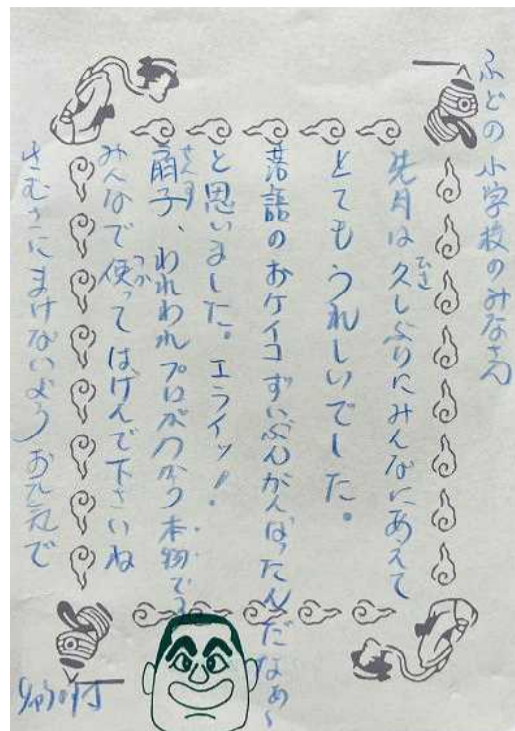 ふどの小学校のみなさん
先月は久しぶりにみんなにあえて
ひさ
とてもうれしいでした。
落語のおケイコずいぶんがんばったんだなぁ〜
と思いました。エライッ!
扇子、われわれプロがつかう本物です
せんす
みんなで使ってはげんで下さいね
つか
さむさにまけないようお元気で